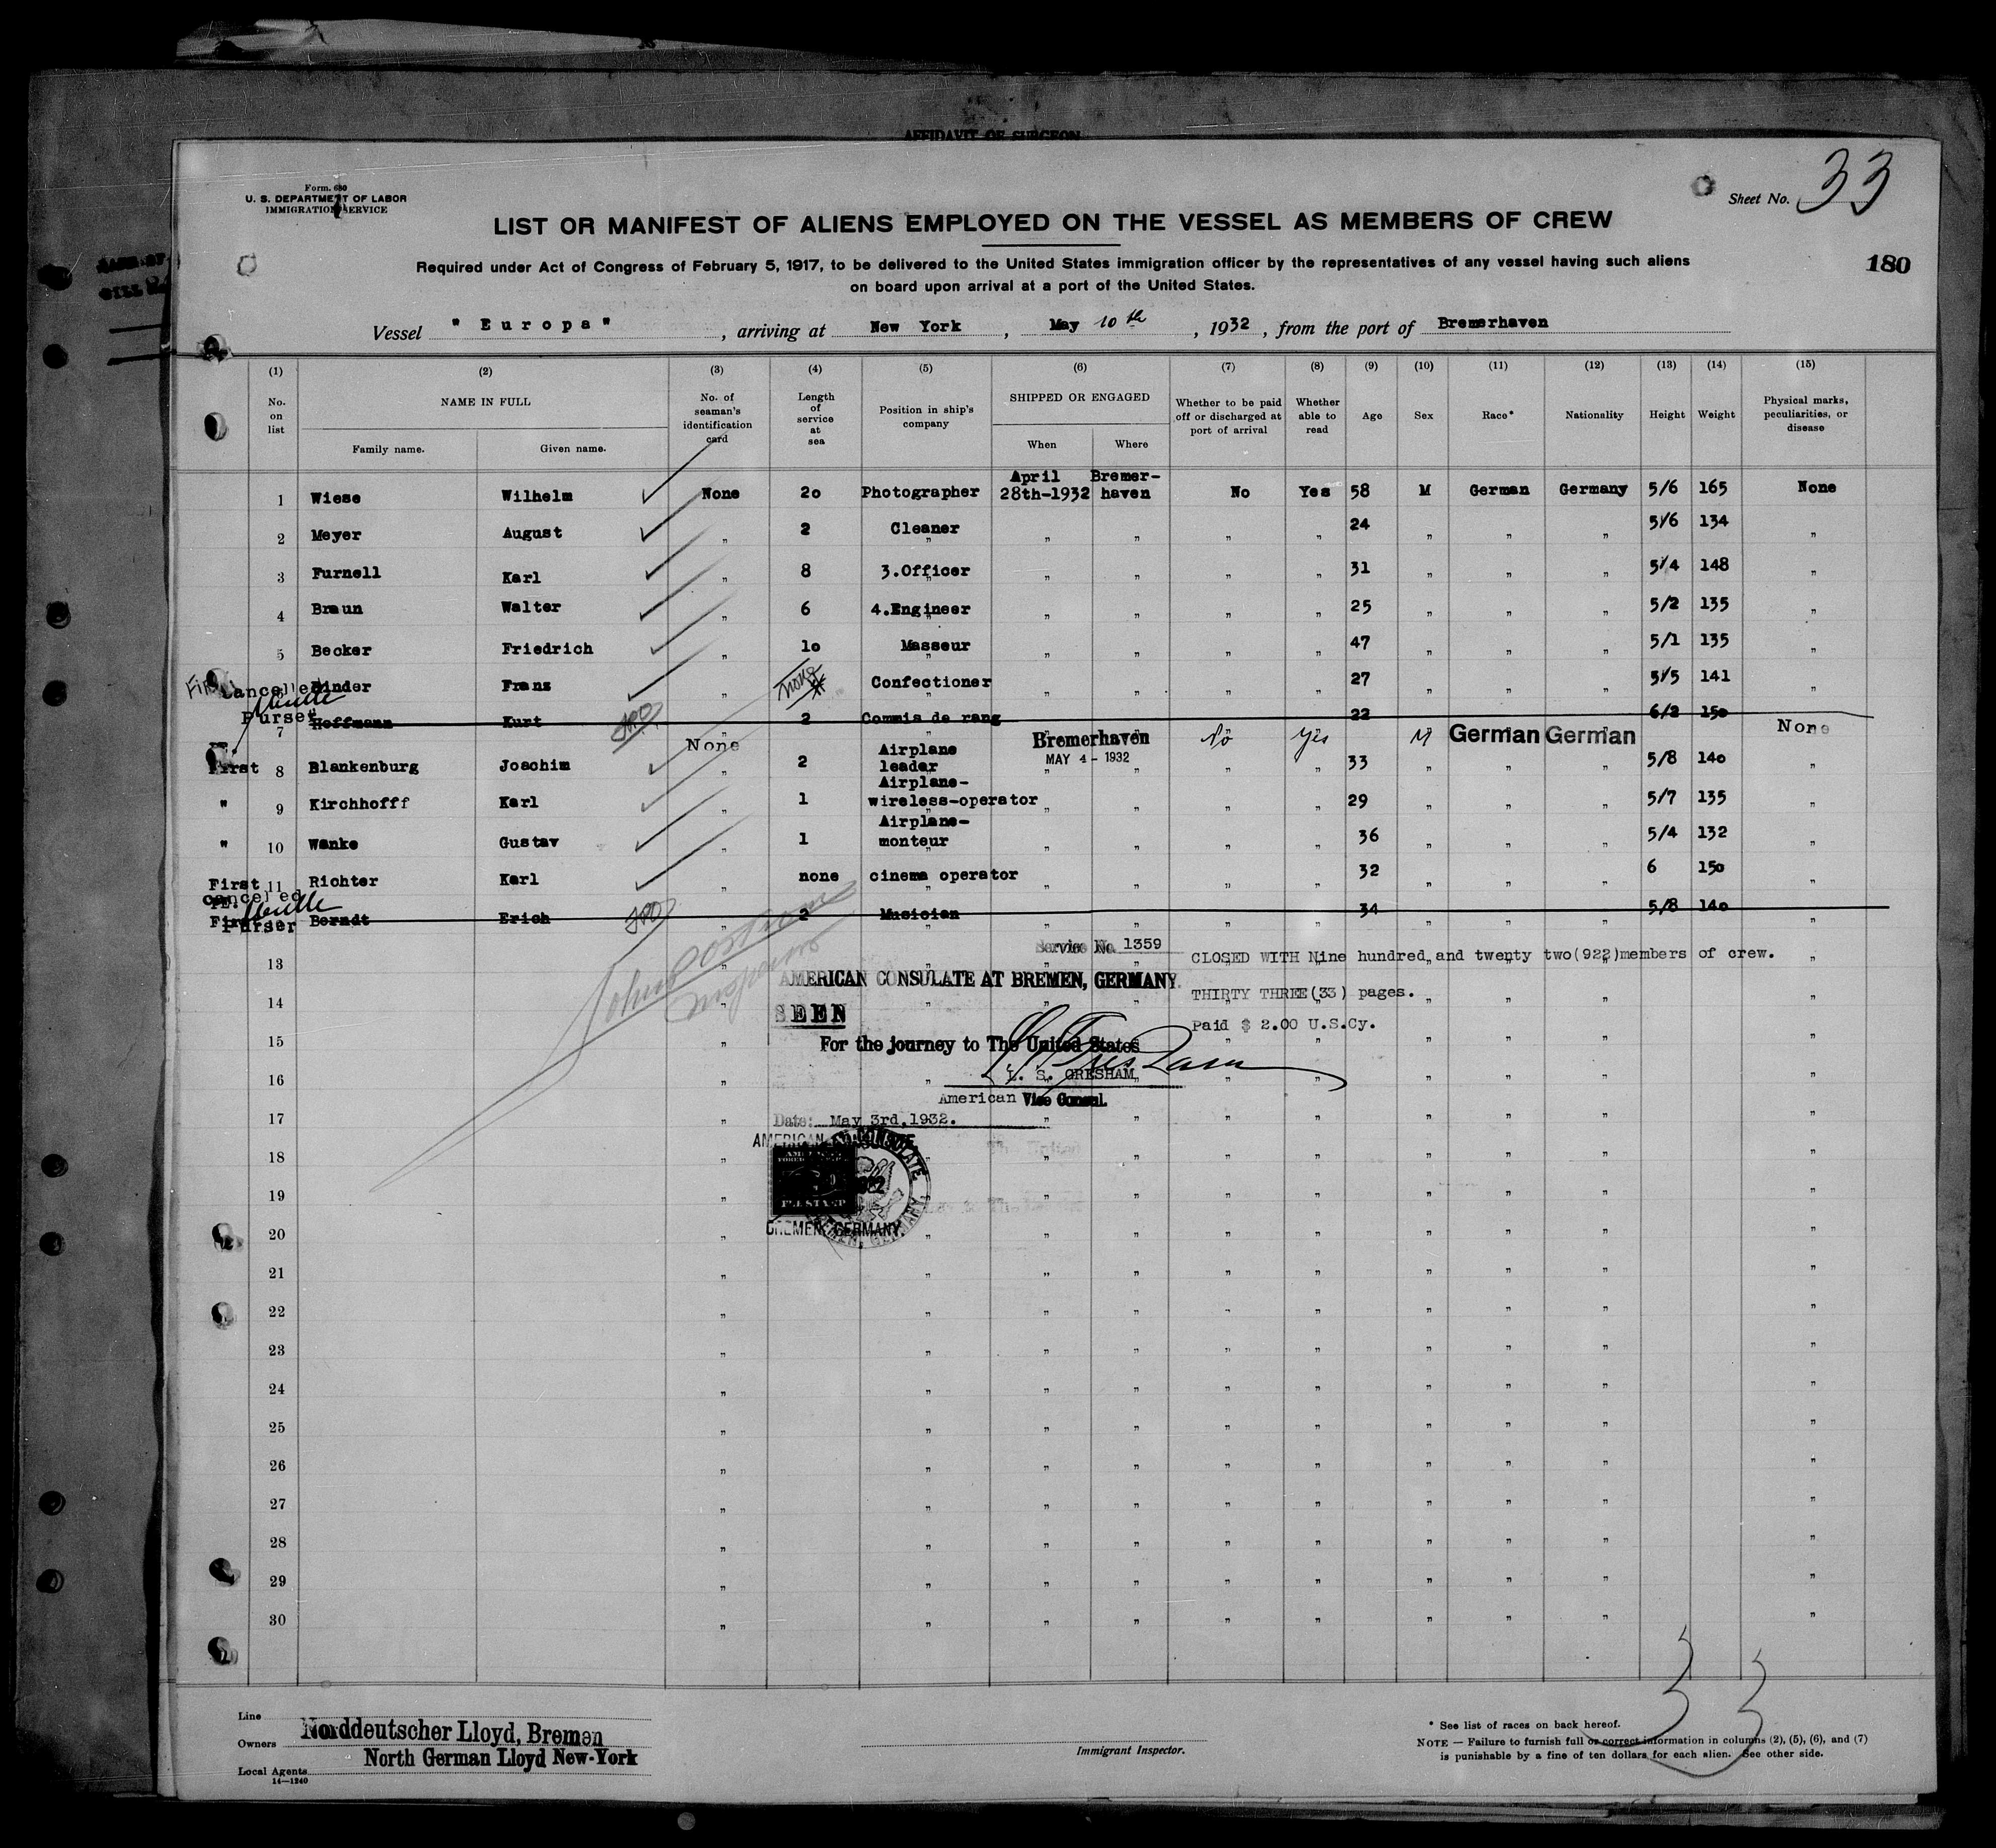 AFFIDAVIT OF SURGEON
Form. 680
U. S. DEPARTMENT OF LABOR
IMMIGRATION SERVICE
Sheet No. 33
LIST OR MANIFEST OF ALIENS EMPLOYED ON THE VESSEL AS MEMBERS OF CREW
Required under Act of Congress of February 5, 1917, to be delivered to the United States immigration officer by the representatives of any vessel having such aliens
on board upon arrival at a port of the United States.
180
Vessel "Europa", arriving at New York, May 10th, 1932, from the port of Bremerhaven
(1) (2) (3) (4) (5) (6) (7) (8) (9) (10) (11) (12) (13) (14) (15)
No. on list NAME IN FULL Family name. Given name. No. of seaman's identification card Length of service at sea Position in ship's company SHIPPED OR ENGAGED When Where Whether to be paid off or discharged at port of arrival Whether able to read Age Sex Race* Nationality Height Weight Physical marks, peculiarities, or disease
1 Wiese Wilhelm None 20 Photographer April 28th-1932 Bremer-haven No Yes 58 M German Germany 5/6 165 None
2 Meyer August " 2 Cleaner " " " " " 24 " " " 5/6 134 "
3 Furnell Karl " 8 3.Officer " " " " " 31 " " " 5/4 148 "
4 Braun Walter " 6 4.Engineer " " " " " 25 " " " 5/2 135 "
5 Becker Friedrich " 10 Masseur " " " " " 47 " " " 5/1 135 "
Cancelled Binder Franz " none Confectioner " " " " " 27 " " " 5/5 141 "
Purser
7 Hoffmann Kurt JPO 2 Commis de rang 22 6/2 150
None Bremerhaven MAY 4 - 1932 No Yes M German German None
First 8 Blankenburg Joachim " 2 Airplane leader " " " " 33 " " " 5/8 140 "
" 9 Kirchhofff Karl " 1 Airplane-wireless-operator " " " " 29 " " " 5/7 135 "
" 10 Wanke Gustav " 1 Airplane-monteur " " " " 36 " " " 5/4 132 "
First 11 Richter Karl " none cinema operator " " " " 32 " " " 6 150 "
cancelled
First Berndt Erich JPO " 2 Musician " " " " 34 " " " 5/8 140 "
Purser
Service No. 1359
13 CLOSED WITH Nine hundred and twenty two(922)members of crew.
AMERICAN CONSULATE AT BREMEN, GERMANY.
14 THIRTY THREE(33) pages.
SEEN
Paid $ 2.00 U.S.Cy.
15 For the journey to The United States
16 L. S. GRESHAM
American Vice Consul.
17 Date: May 3rd,1932.
AMERICAN CONSULATE
18
19
BREMEN, GERMANY.
20
21
22
23
24
25
26
27
28
29
30
33
Line
Owners Norddeutscher Lloyd, Bremen
North German Lloyd New-York
Local Agents
14—1240
Immigrant Inspector.
* See list of races on back hereof.
NOTE — Failure to furnish full or correct information in columns (2), (5), (6), and (7)
is punishable by a fine of ten dollars for each alien. See other side.